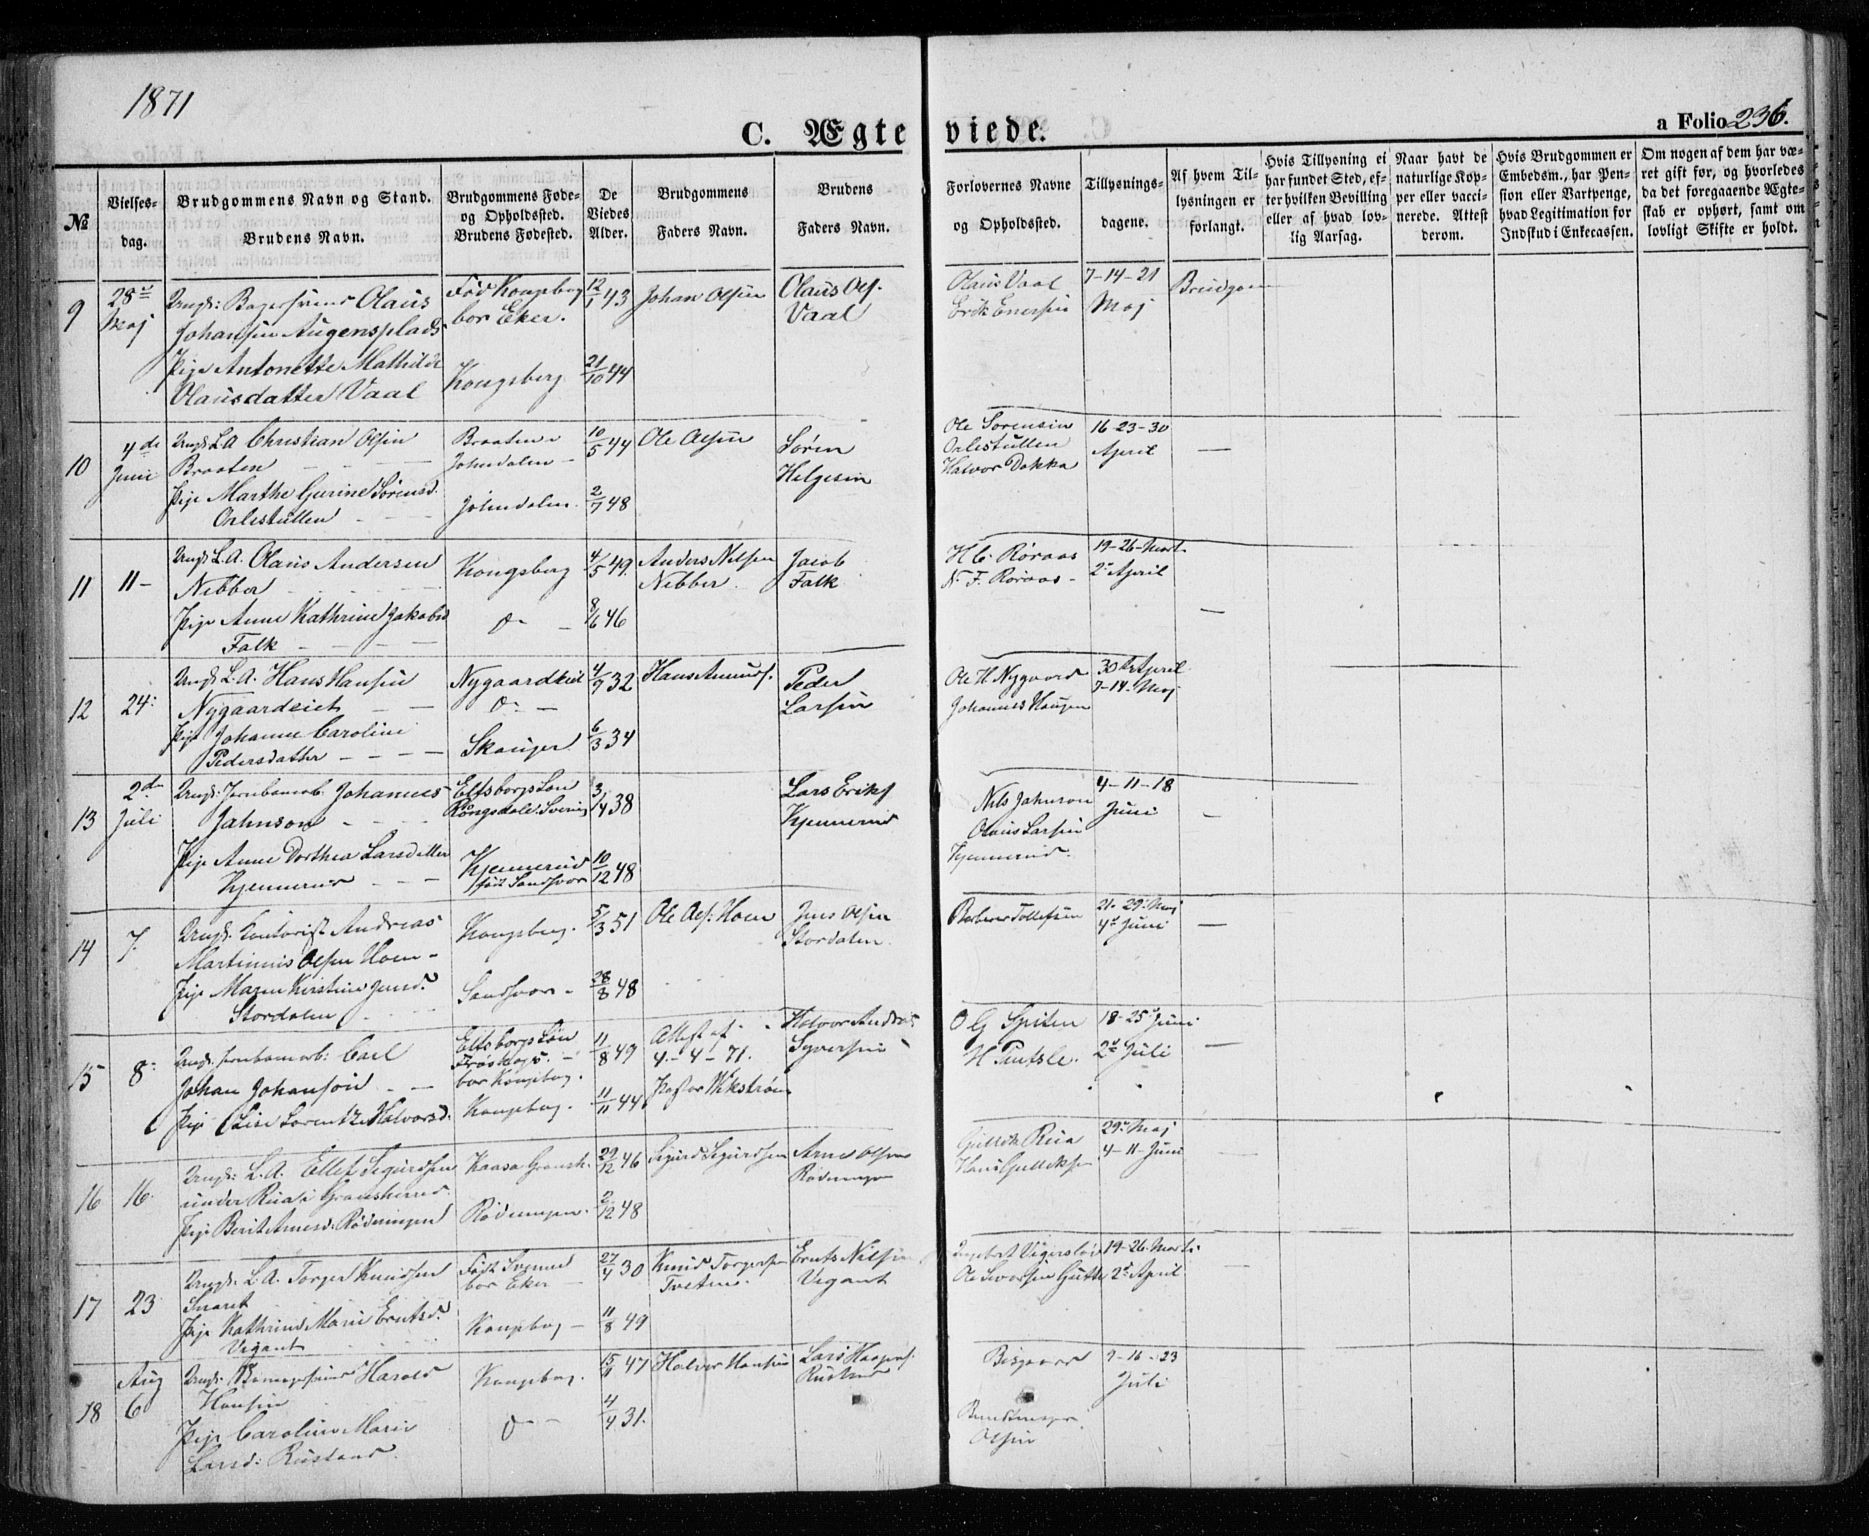 1871
C. Ægteviede.
a Folio 236.
No
Vielsesdag.
Brudgommens Navn og Stand.
Brudens Navn.
Brudgommens Føde-
og Opholdssted.
Brudens Fødested.
De
Viedes
Alder.
Brudgommens
Faders Navn.
Brudens
Faders Navn.
Forlovernes Navne
og Opholdssted.
Tillysnings-
dagene.
Af hvem Til-
lysningen er
forlangt.
Hvis Tillysning ei
har fundet Sted, ef-
ter hvilken Bevilling
eller af hvad lov-
lig Aarsag.
Naar havt de
naturlige Kop-
per eller vacci-
nerede. Attest
derom.
Hvis Brudgommen er
Embedsm., har Pen-
sion eller Vartpenge,
hvad Legitimation for
Indskud i Enkecassen.
Om nogen af dem har væ-
ret gift før, og hvorledes
da det foregaaende Ægte-
skab er ophørt, samt om
lovligt Skifte er holdt.
9
28de
Maj
Ungk: Bagersvend Olaus
Johansen Augensplads
Pige Antonette Mathilde
Olausdatter Vaal
Fød Kongsberg
bor Eker.
Kongsberg
12/1 43
21/10 44
Johan Olsen
Olaus Ols.
Vaal
Olaus Vaal
Erik Enersen
7-14-21
Maj
Brudgom
10
4de
Juni
Ungk: L.A. Christian Olsen
Braaten
Pige Marthe Gurine Sørensd.
Orlestullen
Braaten i
Johndalen
Johndalen
10/5 44
2/7 48
Ole Olsen
Søren
Helgesen
Ole Sorensen
Orlestullen
Halvor Dokka
16-23-30
April
—
11
11-
Ungk: L.A. Olaus Andersen
Nebber
Pige Anne Kathrine Jakobsd
Falk
Kongsberg
do
4/5 49
8/6 46
Anders Nilsen
Nebber
Jacob
Falk
H. C. Røraas
N. F. Røraas
19-26-Marts
2 April
—
12
24:
Ungk: L.A. Hans Hansen
Nygaardeiet
Pige Johanne Caroline
Pedersdatter
Nygaardeiet
do
Skouger
4/9 32
6/3 34
Hans Amunds.
Peder
Larsen
Ole H Nygaard
Johannes Haugen
30te April
7-14 Maj
13
2den
Juli
Ungk: Jernbanearb. Johannes
Jahnson
Pige Anne Dorthea Larsdatter
Kjennerud
Elfsborgs Län
Rongsdale Sverig
Kjennerud
født Sandsvær
3/4 38
10/12 48
Lars Eriks
Kjennerud
Nils Jahnson
Olaus Larsen
Kjennerud.
4-11-18
Juni
—
14
7.
Ungk: Kontorist Andreas
Martinius Olsen Hoen
Pige Maren Kirstine Jensd.
Stordalen
Kongsberg.
Sandsvær
5/3 51
28/8 48
Ole Ols. Hoen
Jens Olsen
Stordalen
Tollefsen
21-29 Maj
4de Juni
—
15
8:
Ungk: Jernbanearb: Carl
Johan Johanson
Pige Elise Lorentze Halvorsd.
Elfsborgs Län
bor Kongsberg.
Kongsberg.
11/8 49
11/11 44
Attest af
4-4-71.
Pastor Wikström
Halvor Andreas
Syversen
O G Spiten
H Pintsle.
18-25 Juni
2de Juli
—
16
16.
Ungk: L.A. Ellef Sigurdsen
under Rua i Gransherred
Pige Berit Arnesd: Rødningen
Kaasa Gransh.
Rødningen.
29/12 46
2/12 48
Sigurd Sigurdsen
Arne Olsen
Rødningen
Gullik Rua
Hans Gulliksen
29 Maj
4-11-Juni
—
17
23
Ungk: L.A. Torger Knudsen
Snaret
Pige Kathrine Marie Erntsd.
Vegant
Født
bor Eker
Kongsberg
27/4 30
11/8 49
Knud Torgersen
Tvetene
Ernts Nilsen
Vegant
Ole Gutte
19-26-Marts
2de April
—
18
Aug
6
Ungk: Harald
Hansen
Pige Caroline Marie
Larsd: Rustand
Kongsberg.
do
47
4/4 31.
Halvor Hansen
Lars
Rustand
Bergaas
Olsen
9-16-23
Juli